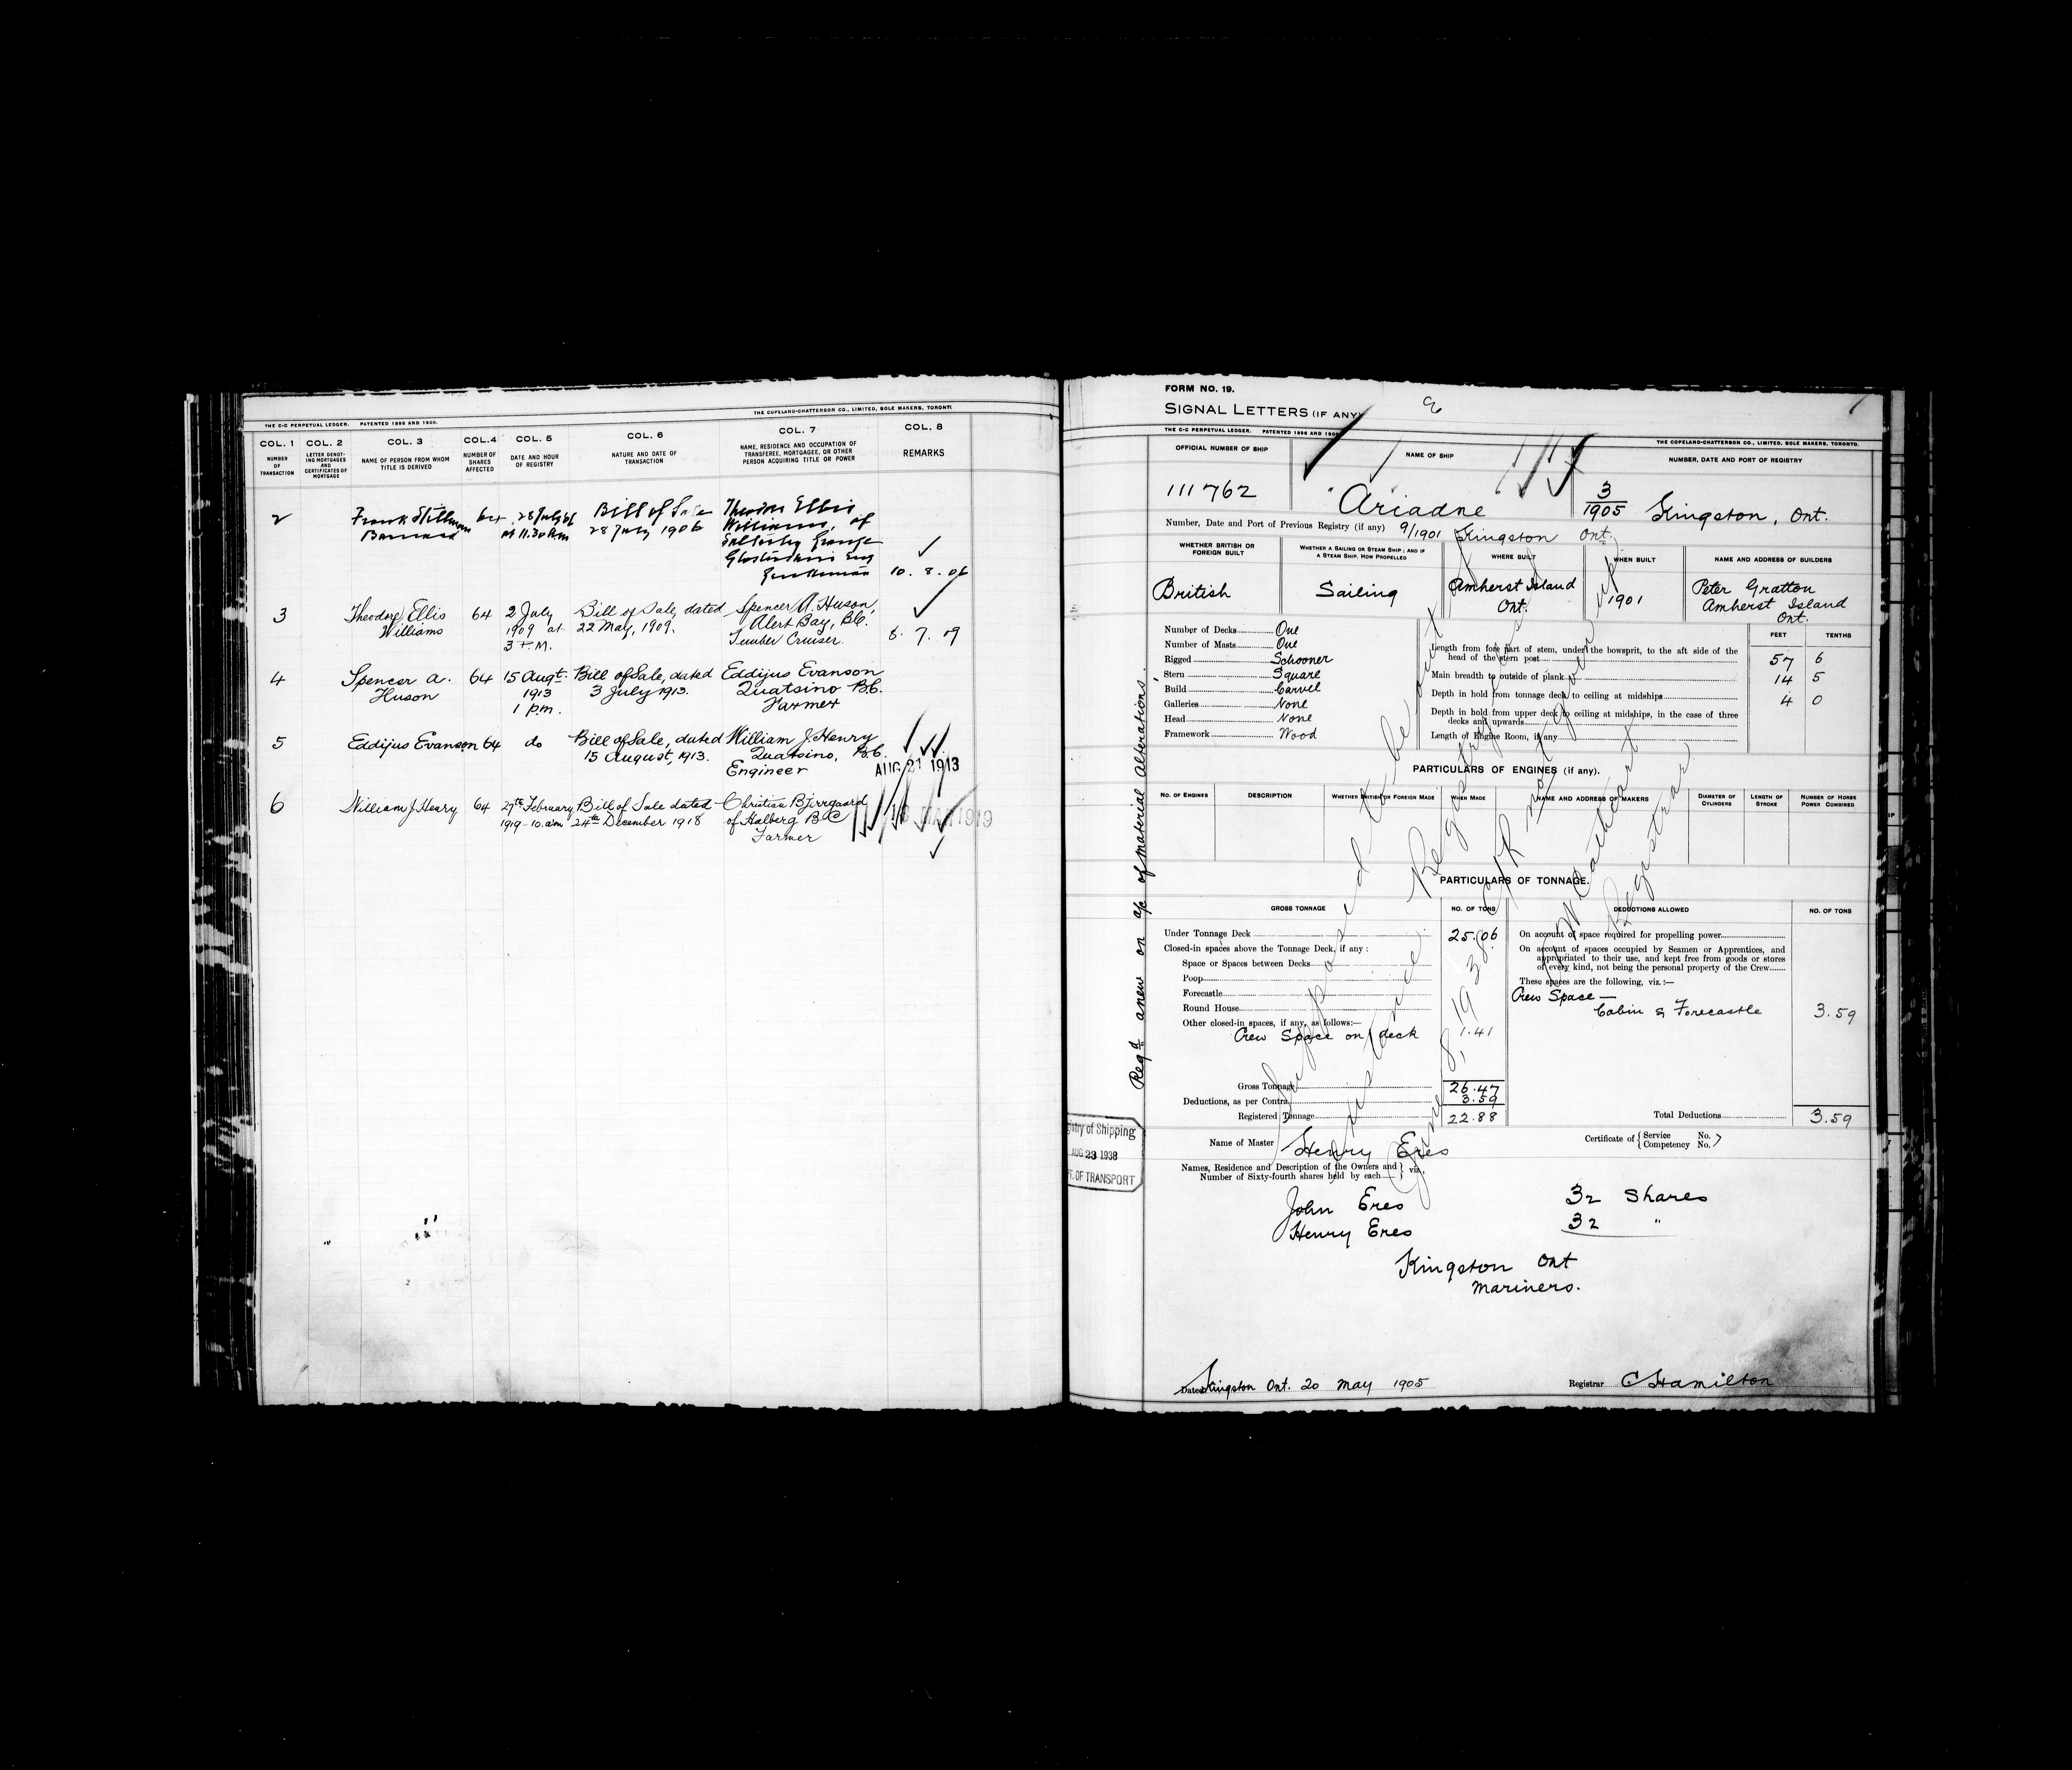 THE C-C PERPETUAL LEDGER. PATENTED 1898 AND 1900.
THE COPELAND-CHATTERSON CO., LIMITED, SOLE MAKERS, TORONTO
COL. 1 COL. 2 COL. 3 COL. 4 COL. 5 COL. 6 COL. 7 COL. 8
NUMBER OF TRANSACTION
LETTER DENOTING MORTGAGES AND CERTIFICATES OF MORTGAGE
NAME OF PERSON FROM WHOM TITLE IS DERIVED
NUMBER OF SHARES AFFECTED
DATE AND HOUR OF REGISTRY
NATURE AND DATE OF TRANSACTION
NAME, RESIDENCE AND OCCUPATION OF TRANSFEREE, MORTGAGEE, OR OTHER PERSON ACQUIRING TITLE OR POWER
REMARKS
2 Frank Stillman 64 28 July 06 Bill of Sale Theodore Ellis
Barnard at 11.30 Am 28 July 1906 Williams, of
Grange
Glostershire Eng
Gentleman 10. 8. 06
3 Theodore Ellis 64 2 July Bill of Sale, dated Spencer A. Huson,
Williams 1909 at 22 May, 1909. Alert Bay, B.C.
3 P.M. Timber Cruiser 8. 7. 09
4 Spencer A. 64 15 Augt. Bill of Sale, dated Eddijus Evanson
Huson 1913 3 July 1913. Quatsino B.C.
1 p.m. Farmer
5 Eddijus Evanson 64 do Bill of Sale, dated William J. Henry
15 August, 1913. Quatsino, B.C.
Engineer AUG 21 1913
6 William J Henry 64 27th February Bill of Sale dated Christian Bjerregaard
1919 - 10. a.m 24th December 1918 of Holberg B C
Farmer MAR 1919
FORM NO. 19.
SIGNAL LETTERS (IF ANY)
THE C-C PERPETUAL LEDGER. PATENTED 1898 AND 1900
THE COPELAND-CHATTERSON CO., LIMITED, SOLE MAKERS, TORONTO.
OFFICIAL NUMBER OF SHIP
NAME OF SHIP
NUMBER, DATE AND PORT OF REGISTRY
111762 "Ariadne 3/1905 Kingston, Ont.
Number, Date and Port of Previous Registry (if any) 9/1901 Kingston Ont.
WHETHER BRITISH OR FOREIGN BUILT
WHETHER A SAILING OR STEAM SHIP; AND IF A STEAM SHIP, HOW PROPELLED
WHERE BUILT
WHEN BUILT
NAME AND ADDRESS OF BUILDERS
British Sailing Amherst Island Ont. 1901 Peter Gratton
Amherst Island
Ont.
FEET TENTHS
Number of Decks One
Number of Masts One
Rigged Schooner
Stern Square
Build Carvel
Galleries None
Head None
Framework Wood
Length from fore part of stem, under the bowsprit, to the aft side of the head of the stern post 57 6
Main breadth to outside of plank 14 5
Depth in hold from tonnage deck to ceiling at midships 4 0
Depth in hold from upper deck to ceiling at midships, in the case of three decks and upwards
Length of Engine Room, if any
PARTICULARS OF ENGINES (if any).
NO. OF ENGINES
DESCRIPTION
WHETHER BRITISH OR FOREIGN MADE
WHEN MADE
NAME AND ADDRESS OF MAKERS
DIAMETER OF CYLINDERS
LENGTH OF STROKE
NUMBER OF HORSE POWER COMBINED
PARTICULARS OF TONNAGE.
GROSS TONNAGE NO. OF TONS DEDUCTIONS ALLOWED NO. OF TONS
Under Tonnage Deck 25.06
Closed-in spaces above the Tonnage Deck, if any:
Space or Spaces between Decks
Poop
Forecastle
Round House
Other closed-in spaces, if any, as follows:—
Crew Space on deck 1.41
Gross Tonnage 26.47
Deductions, as per Contra 3.59
Registered Tonnage 22.88
On account of space required for propelling power
On account of spaces occupied by Seamen or Apprentices, and appropriated to their use, and kept free from goods or stores of every kind, not being the personal property of the Crew
These spaces are the following, viz.:—
Crew Space —
Cabin & Forecastle 3.59
Total Deductions 3.59
Name of Master Henry Eves
Certificate of { Service No.
Competency No.
Names, Residence and Description of the Owners and Number of Sixty-fourth shares held by each } viz.,
John Eves 32 Shares
Henry Eves 32 "
Kingston Ont
Mariners.
Dated Kingston Ont. 20 May 1905
Registrar C Hamilton
Regd anew on a/c of material alterations.
Supposed to be out
of existence. Registry closed
June 8, 1938. C/R not given up
Registrar
Registry of Shipping
AUG 23 1938
PT. OF TRANSPORT